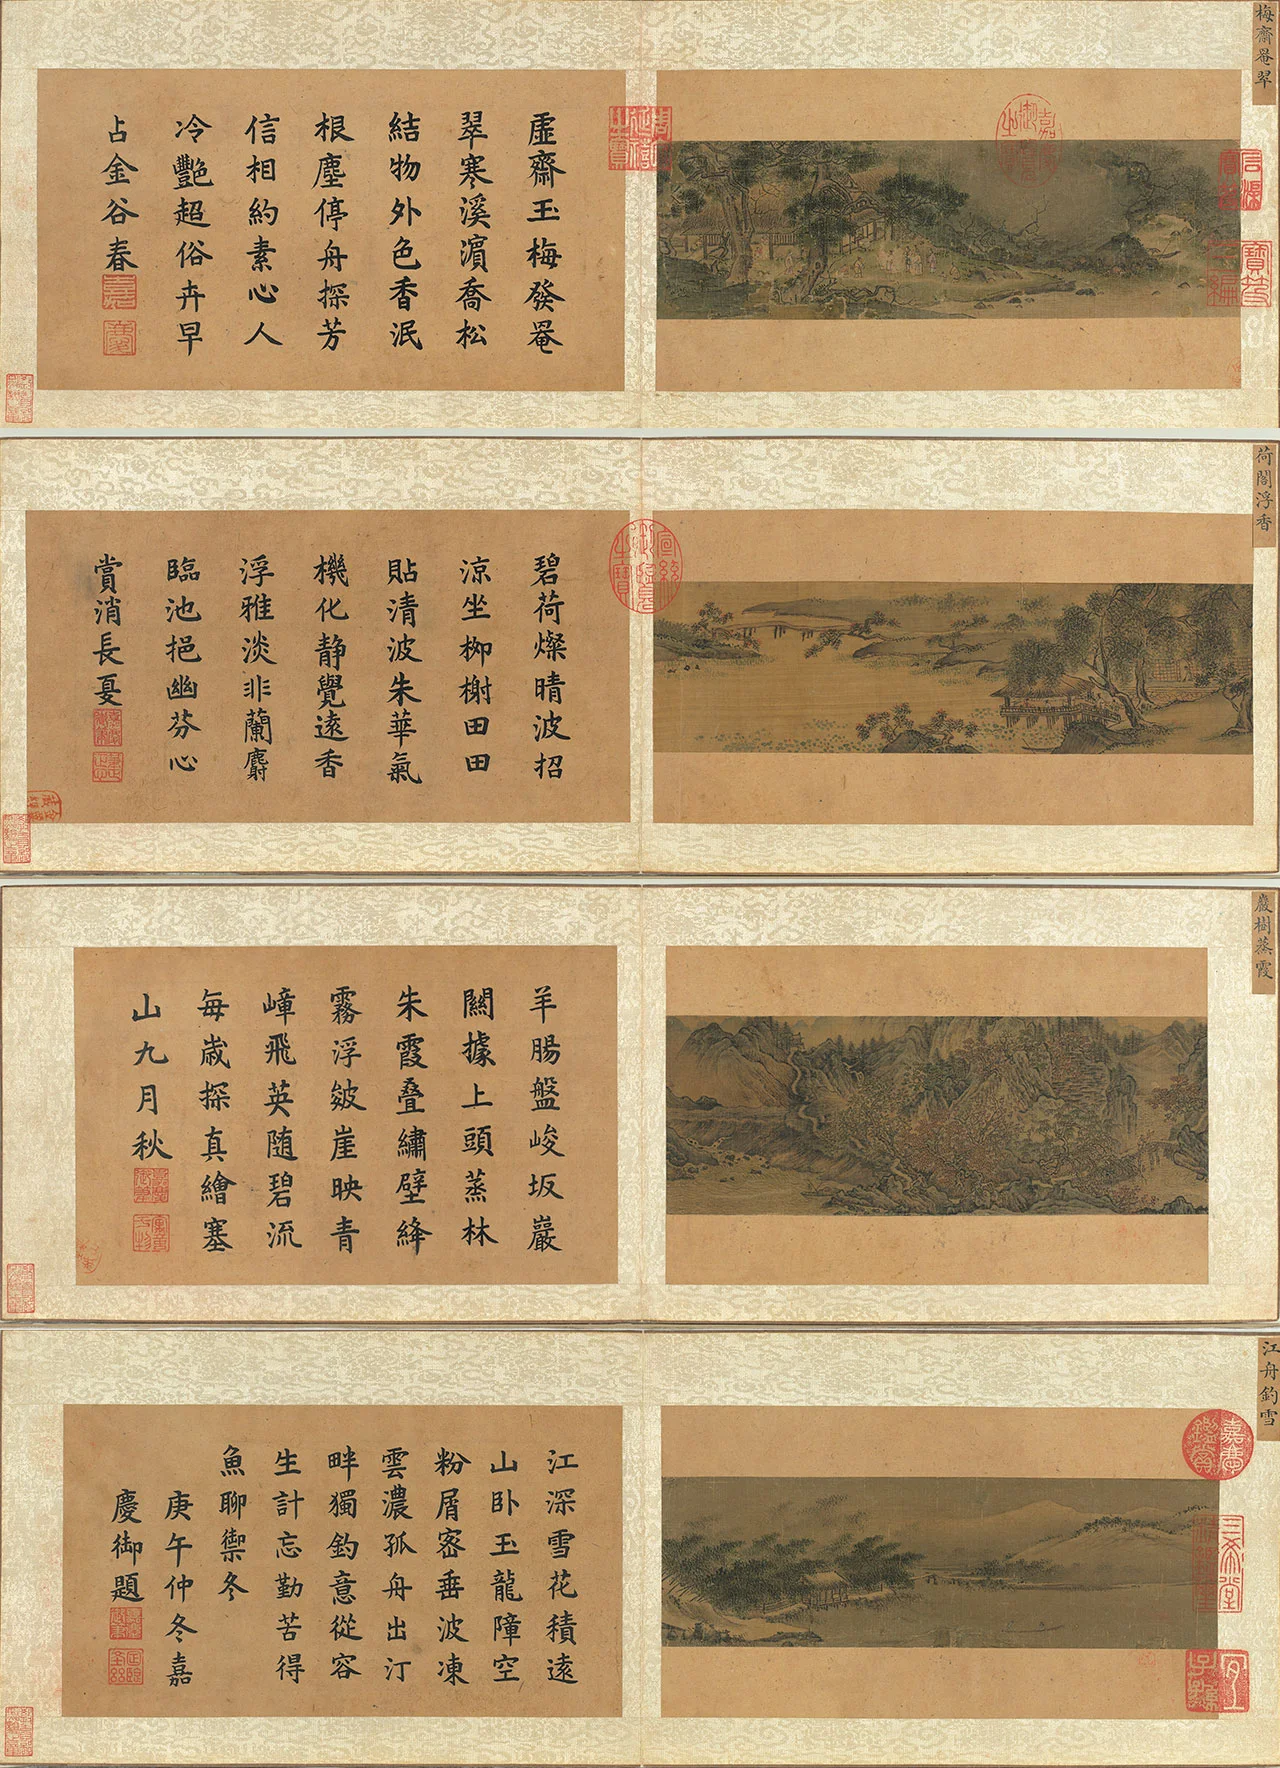 梅齋罨翠
虛齋玉梅發罨
翠寒溪濱喬松
結物外色香泯
根塵停舟探芳
信相約素心人
冷艷超俗卉早
占金谷春
荷閣浮香
碧荷燦晴波招
涼坐柳榭田田
貼清波朱華氣
機化靜覺遠香
浮雅淡非蘭麝
臨池挹幽芬心
賞消長夏
巖樹蒸霞
羊腸盤峻坂巖
關據上頭蒸林
朱霞疊繡壁絳
霧浮皴崖映青
嶂飛英随碧流
每歲探真繪塞
山九月秋
江舟釣雪
嘉慶鑑賞
三希堂
宜子孫
江深雪花積遠
山卧玉龍障空
粉屑密垂波凍
雲濃孤舟出汀
畔獨釣意從容
生計忘勤苦得
魚聊禦冬
庚午仲冬嘉
慶御題